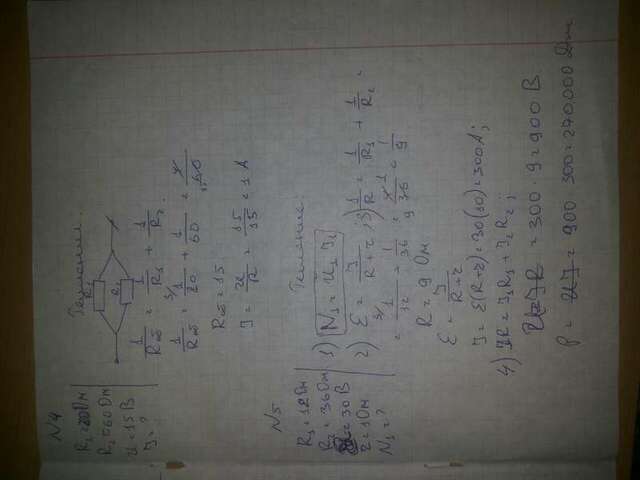 N4
R₁=20Ом
R₂=60Ом
U=15В
I=?
Решение:
R₁
R₂
1/Rоб = 1/R₁ + 1/R₂
1/Rоб = 3/1/20 + 1/60 = 4/60
Rоб = 15
I = U/R = 15/15 = 1 А
N5
R₁=12Ом
R₂=36Ом
=30В
r=1Ом
N₁=?
Решение:
1) N₁ = U₁ I₁
2) Ɛ = I/R+r ; 3) 1/R = 1/R₁ + 1/R₂ =
= 3/1/12 + 1/36 = 4/36 = 1/9
R = 9 Ом
Ɛ = I/R+r
I = Ɛ(R+r) = 30(10) = 300А;
4) IR = I₁R₁ + I₂R₂;
U=IR = 300 · 9 = 900 В.
P = UI = 900 300 = 270,000 Дж